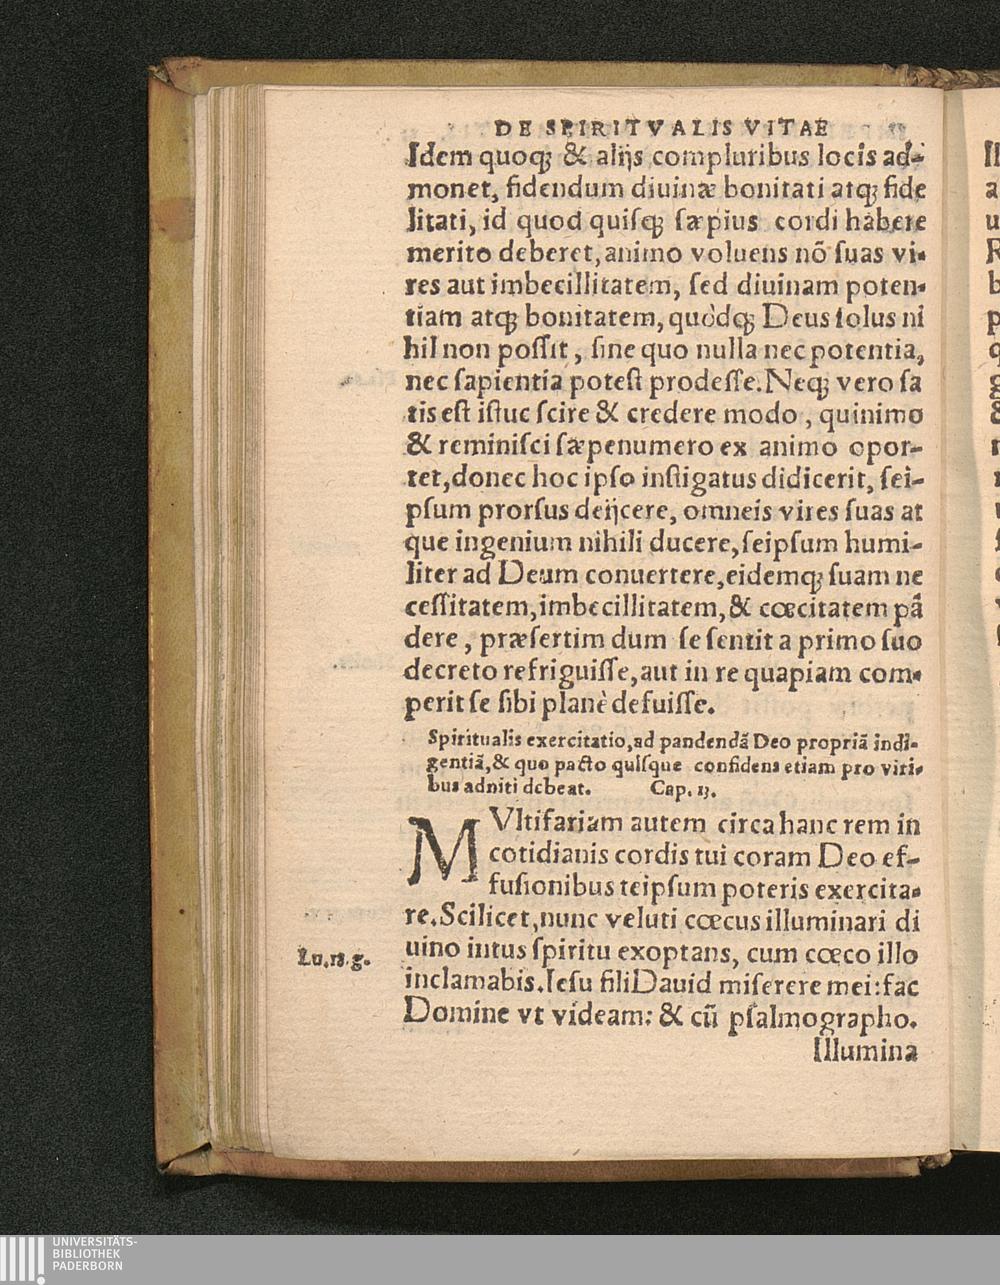 DE SPIRITVALIS VITAE
Idem quoqꝫ & alijs compluribus locis ad-
monet, fidendum diuinæ bonitati atqꝫ fide
litati, id quod quiſqꝫ ſæpius cordi habere
merito deberet, animo voluens nõ ſuas vi-
res aut imbecillitatem, ſed diuinam poten-
tiam atqꝫ bonitatem, quòdqꝫ Deus ſolus ni
hil non poſſit, ſine quo nulla nec potentia,
nec ſapientia poteſt prodeſſe. Neqꝫ vero ſa
tis eſt iſtuc ſcire & credere modo, quinimo
& reminiſci ſæpenumero ex animo opor-
tet, donec hoc ipſo inſtigatus didicerit, ſei-
pſum prorſus deijcere, omneis vires ſuas at
que ingenium nihili ducere, ſeipſum humi-
liter ad Deum conuertere, eidemqꝫ ſuam ne
ceſſitatem, imbecillitatem, & cœcitatem pã
dere, præſertim dum ſe ſentit a primo ſuo
decreto refriguiſſe, aut in re quapiam com-
perit ſe ſibi planè defuiſſe.
Spiritualis exercitatio, ad pandendã Deo propriã indi-
gentiã, & quo pacto quiſque confidens etiam pro viri-
bus adniti debeat. Cap. 13.
MVltifariam autem circa hanc rem in
cotidianis cordis tui coram Deo ef-
fuſionibus teipſum poteris exercita-
re. Scilicet, nunc veluti cœcus illuminari di
Lu.18.g. uino intus ſpiritu exoptans, cum cœco illo
inclamabis. Ieſu fili Dauid miſerere mei: fac
Domine vt videam: & cũ pſalmographo.
Illumina
UNIVERSITÄTS-
BIBLIOTHEK
PADERBORN